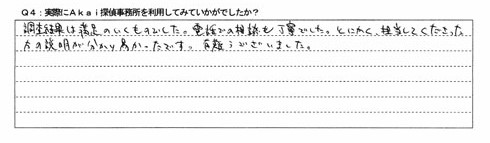 Q4：実際にAkai探偵事務所を利用してみていかがでしたか？
調査結果は満足のいくものでした。電話での相談も丁寧でした。とにかく、担当してくださった
方の説明が分かり易かったです。有難うございました。